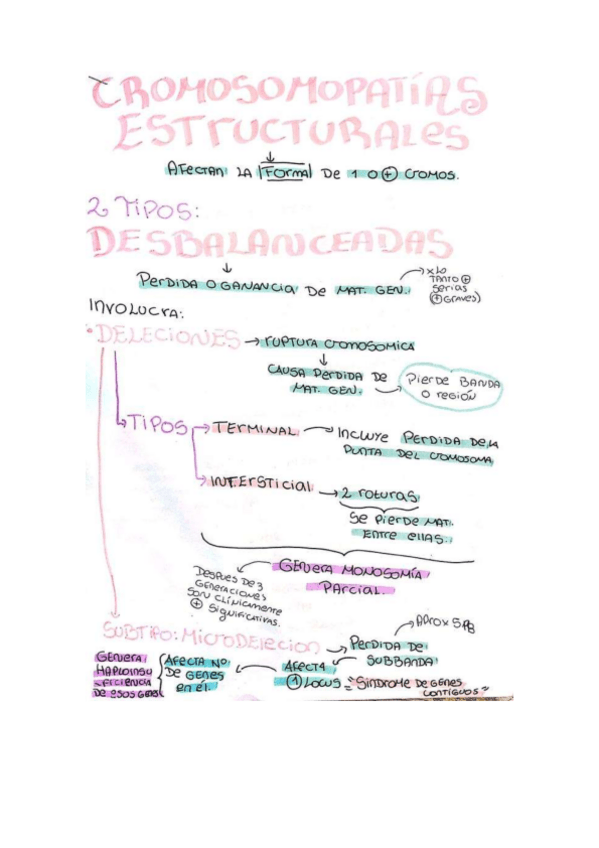 CROMOSOMOPATÍAS
ESTRUCTURALES
AFECTAN LA FORMA DE 1 O + CROMOS.
2 TIPOS:
DESBALANCEADAS
PERDIDA O GANANCIA DE MAT. GEN.
x Lo
TANTO +
serias
(+ GRAVES)
INVOLUCRA:
• DELECIONES → RUPTURA CROMOSOMICA
CAUSA PERDIDA DE
MAT. GEN.
PIERDE BANDA
O REGIÓN
TIPOS
TERMINAL → INCLUYE PERDIDA DE LA
PUNTA DEL CROMOSOMA
INTERSTICIAL → 2 ROTURAS
SE PIERDE MAT.
ENTRE ELLAS.
GENERA MONOSOMÍA
PARCIAL.
DESPUES DE 3
GENERACIONES
SON CLÍNICAMENTE
+ SIGNIFICATIVAS.
SUBTIPO: MICRODELECION → PERDIDA DE
SUBBANDA
AFECTA
1 LOCUS = "SINDROME DE GENES
CONTIGUOS"
AFECTA Nº
DE GENES
en él.
GENERA
HAPLOINSU
-FICIENCIA
DE ESOS GENES